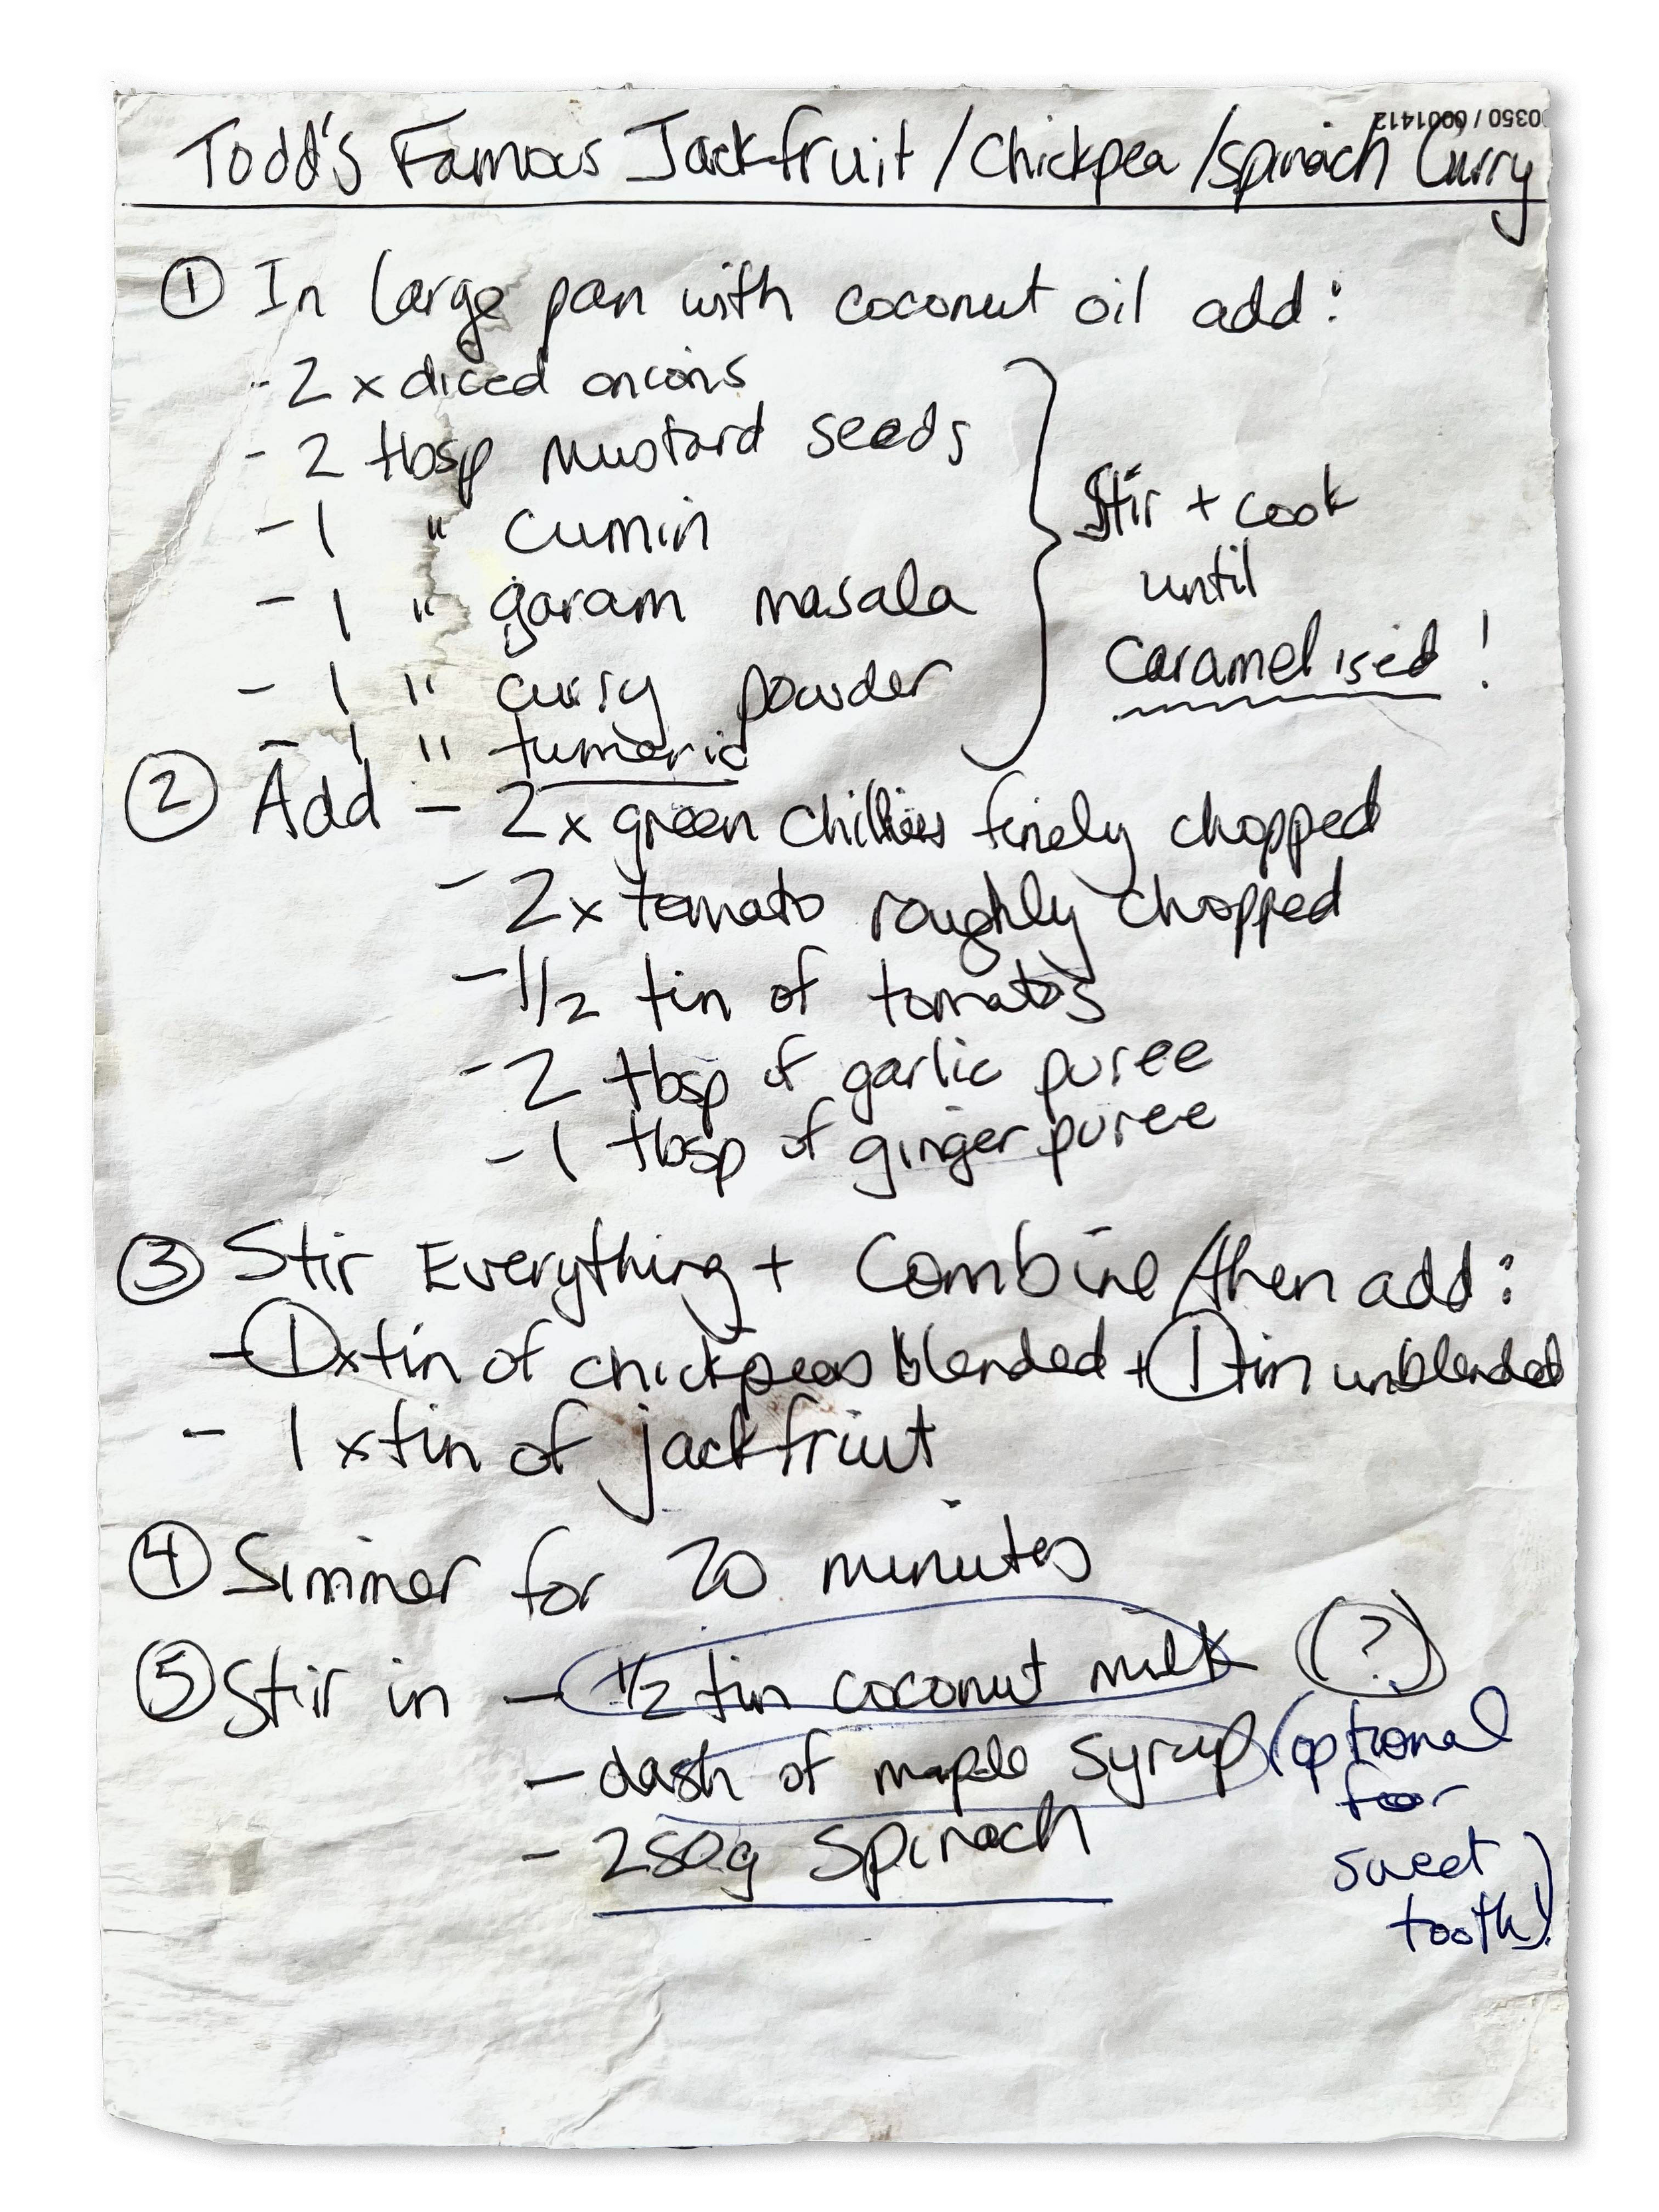 0350 / 0001412
Todd's Famous Jackfruit/Chickpea/spinach Curry
① In large pan with coconut oil add:
- 2 x diced onions
- 2 tbsp mustard seeds
- 1 " cumin
- 1 " garam masala
- 1 " curry powder
- 1 " tumeric
} Stir + cook
until
caramelised!
② Add - 2x green chillies finely chopped
- 2x tomato roughly chopped
- 1/2 tin of tomatos
- 2 tbsp of garlic puree
- 1 tbsp of ginger puree
③ Stir Everything + Combine/then add:
- 1 x tin of chickpeas blended + 1 tin unblended
- 1 x tin of jackfruit
④ Simmer for 20 minutes
⑤ Stir in - 1/2 tin coconut milk (?)
- dash of maple syrup (optional
for
sweet
tooth!)
- 250g spinach